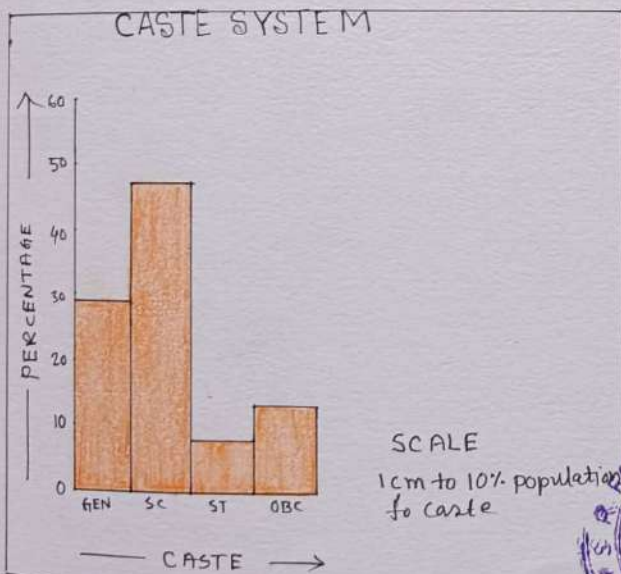 CASTE SYSTEM
60
50
40
30
20
10
0
PERCENTAGE
GEN SC ST OBC
CASTE
SCALE
1cm to 10% population
to caste